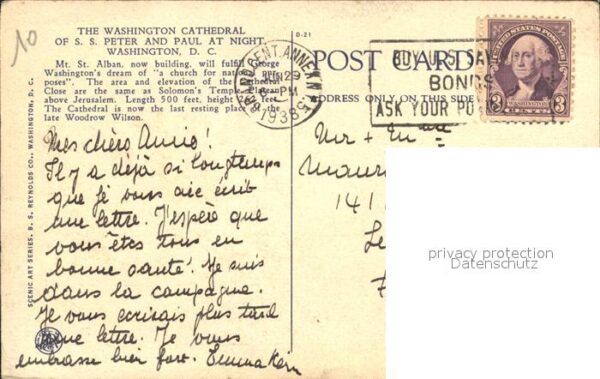 10
THE WASHINGTON CATHEDRAL
OF S. S. PETER AND PAUL AT NIGHT,
WASHINGTON, D. C.
Mt. St. Alban, now building, will fulfill George
Washington's dream of "a church for national pur-
poses". The area and elevation of the Cathedral
Close are the same as Solomon's Temple Plateau
above Jerusalem. Length 500 feet, height
The Cathedral is now the last resting place of the
late Woodrow Wilson.
D-21
POST CARD
ADDRESS ONLY ON THIS SIDE
GRAND CENT. ANNEX N.Y.
JUN 29
PM
1938
BUY U.S. SAV
BONDS
ASK YOUR PO
UNITED STATES POSTAGE
WASHINGTON
3 3
SCENIC ART SERIES. B. S. REYNOLDS CO., WASHINGTON, D. C.
Mes chers Amis!
Il y a déjà si longtemps
que je vous aie écrit
une lettre. J'espère que
vous êtes tous en
bonne santé! Je suis
dans la campagne.
Je vous écrirais plus tard
une lettre. Je vous
embrasse bien fort. Emma Kern
Mr + Mme
Maur
141
Le
privacy protection
Datenschutz